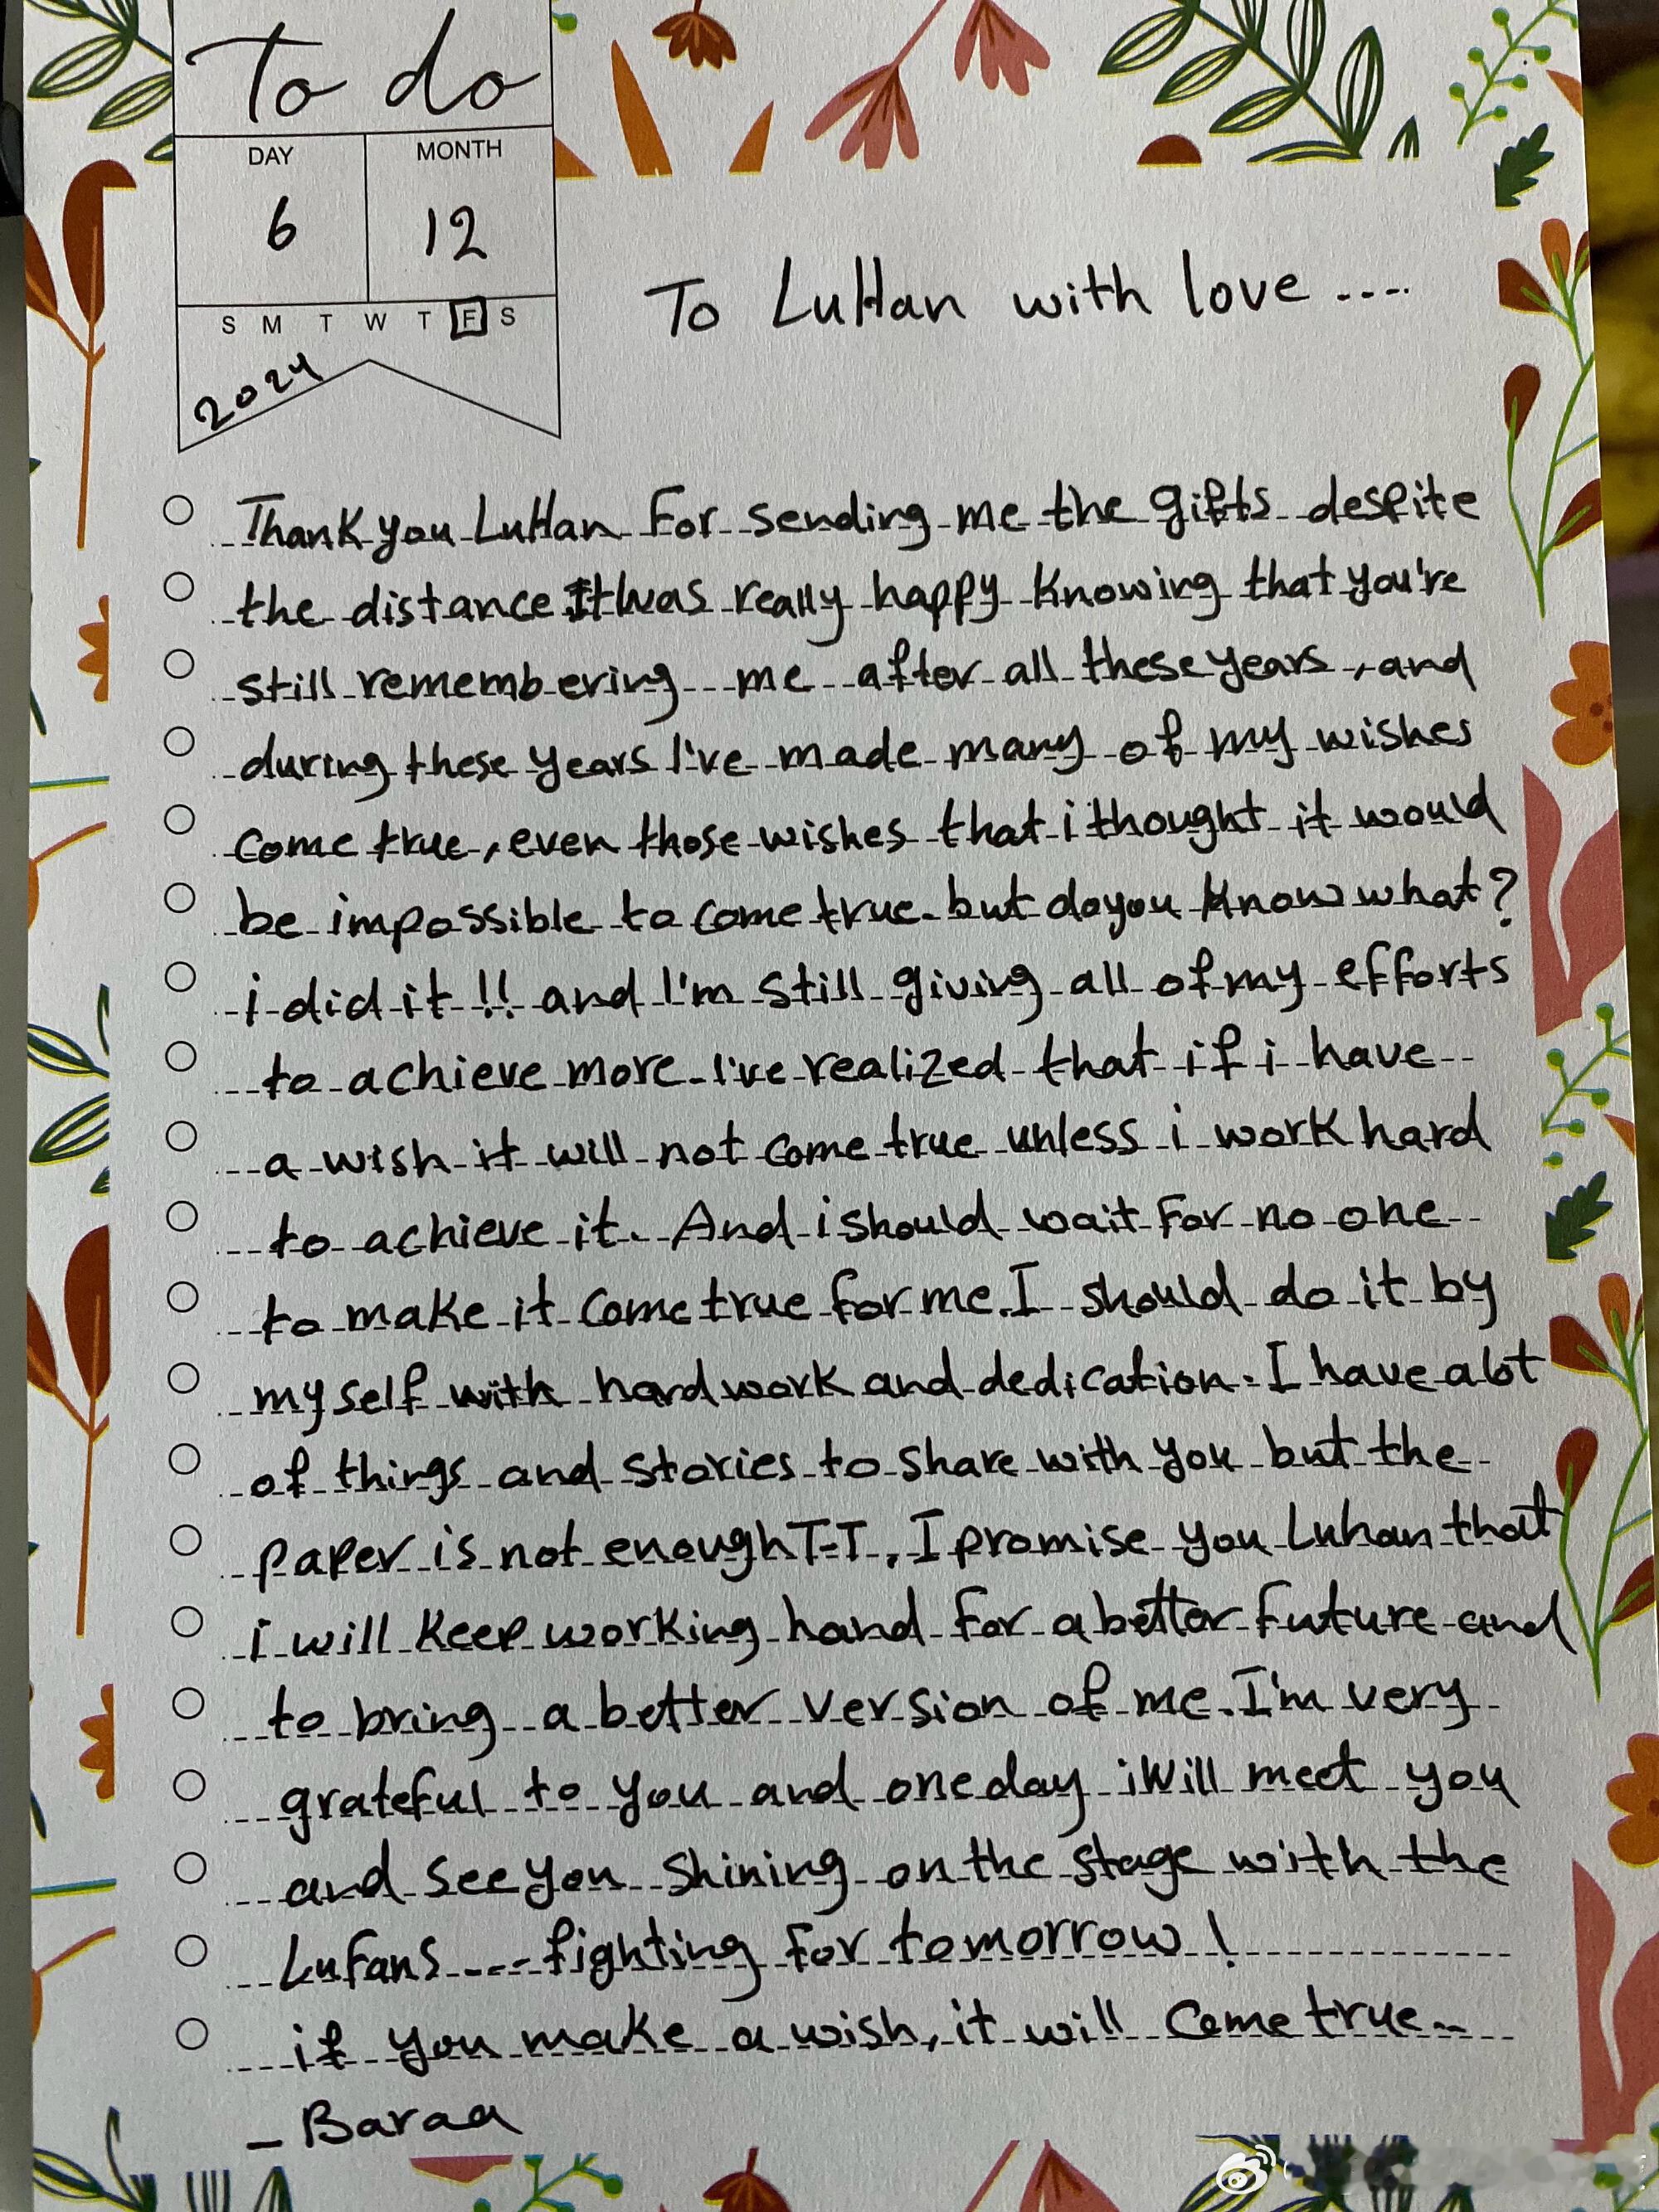 To do
DAY MONTH
6 12
S M T W T F S
2024
To LuHan with love ....
Thank you LuHan For sending me the gifts despite
the distance It was really happy Knowing that you're
still remembering me after all these years, and
during these years I've made many of my wishes
come true, even those wishes that i thought it would
be impossible to come true. but do you Know what?
i did it !! and I'm still giving all of my efforts
to achieve more. I've realized that if i have
a wish it will not come true unless i work hard
to achieve it. And i should wait For no one
to make it come true for me. I should do it by
my self with hard work and dedication. I have a lot
of things and stories to share with you but the
paper is not enough T-T, I promise you Luhan that
i will Keep working hand for a better future and
to bring a better version of me. I'm very
grateful to you and one day i Will meet you
and see you shining on the stage with the
LuFans .... fighting For tomorrow!
if you make a wish, it will come true..
- Baraa